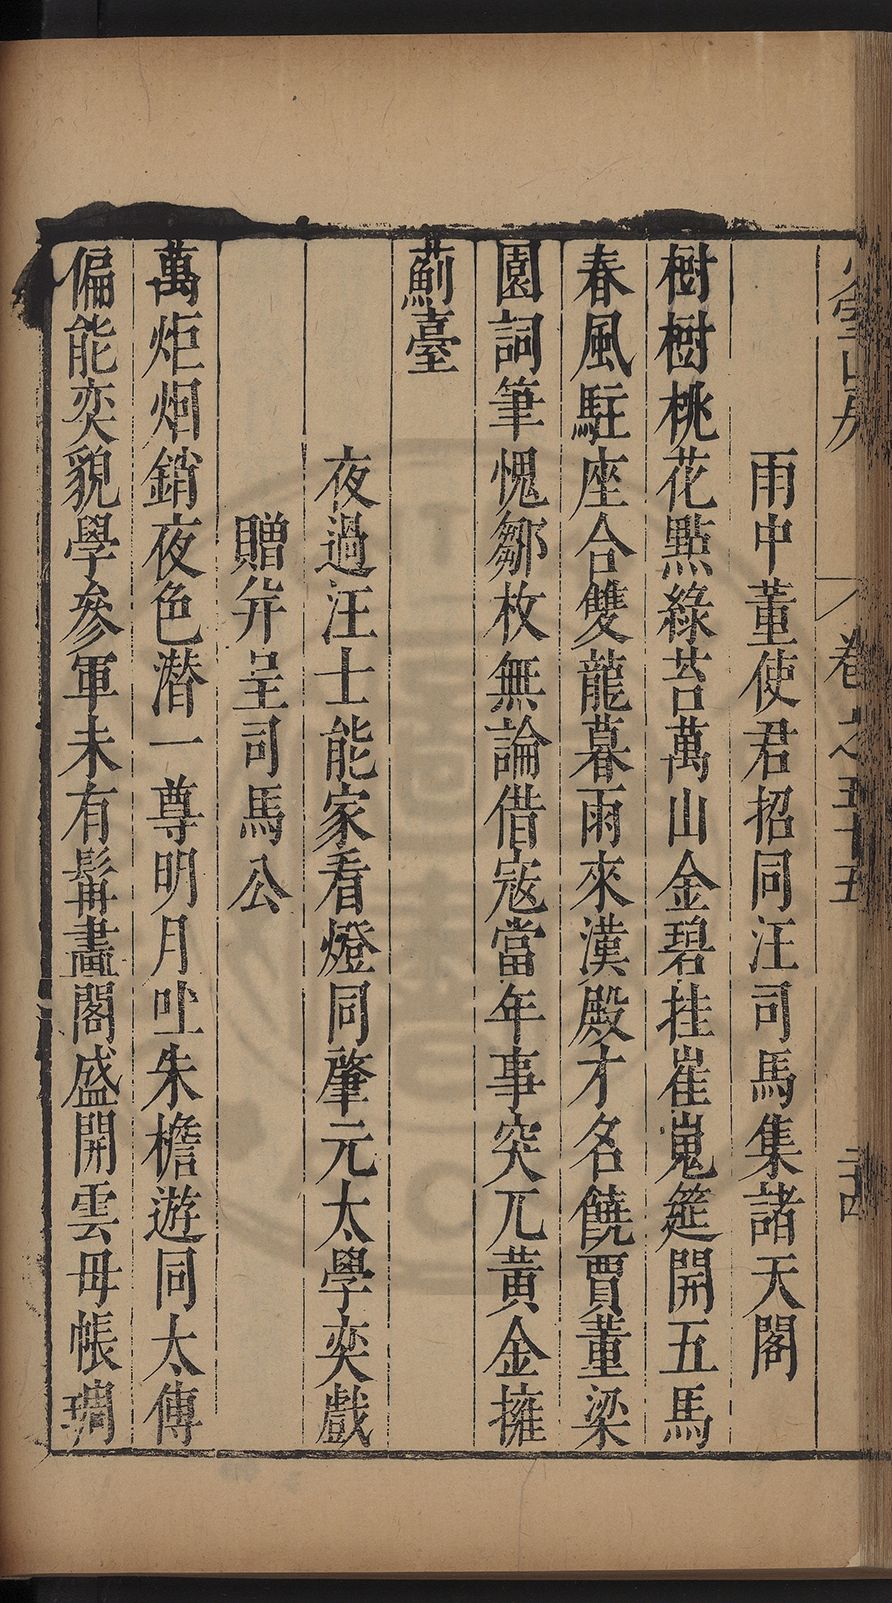 卷之五十五
雨中董使君招同汪司馬集諸天閣
樹樹桃花點綠苔萬山金碧挂崔嵬筵開五馬
春風駐座合雙龍暮雨來漢殿才名饒賈董梁
園詞筆愧鄒枚無論借寇當年事突兀黃金擁
薊臺
夜過汪士能家看燈同肇元太學奕戲
贈并呈司馬公
萬炬烟銷夜色潜一尊明月吐朱檐遊同太傅
偏能奕貌學參軍未有髯畫閣盛開雲母帳琱